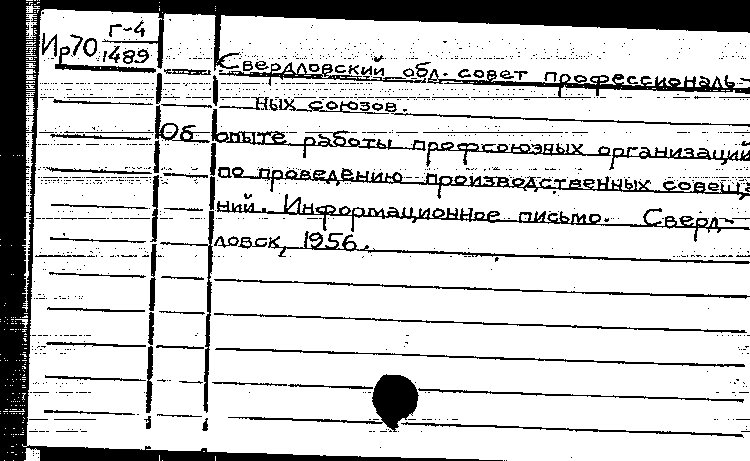 Ир70 Г-4
1489
Свердловский обл. совет профессиональ-
ных союзов.
Об опыте работы профсоюзных организаций
по проведению производственных совеща
ний. Информационное письмо. Сверд-
ловск, 1956.